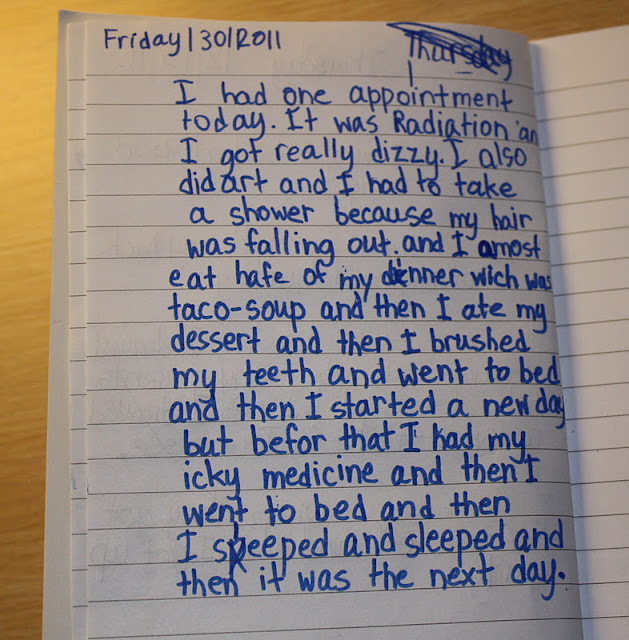 Friday|30|2011 Thursday
I had one appointment
today. It was Radiation an
I got really dizzy. I also
did art and I had to take
a shower because my hair
was falling out. and I amost
eat hafe of my dinner wich was
taco-soup and then I ate my
dessert and then I brushed
my teeth and went to bed
and then I started a new day
but befor that I had my
icky medicine and then I
went to bed and then
I sleeped and sleeped and
then it was the next day.